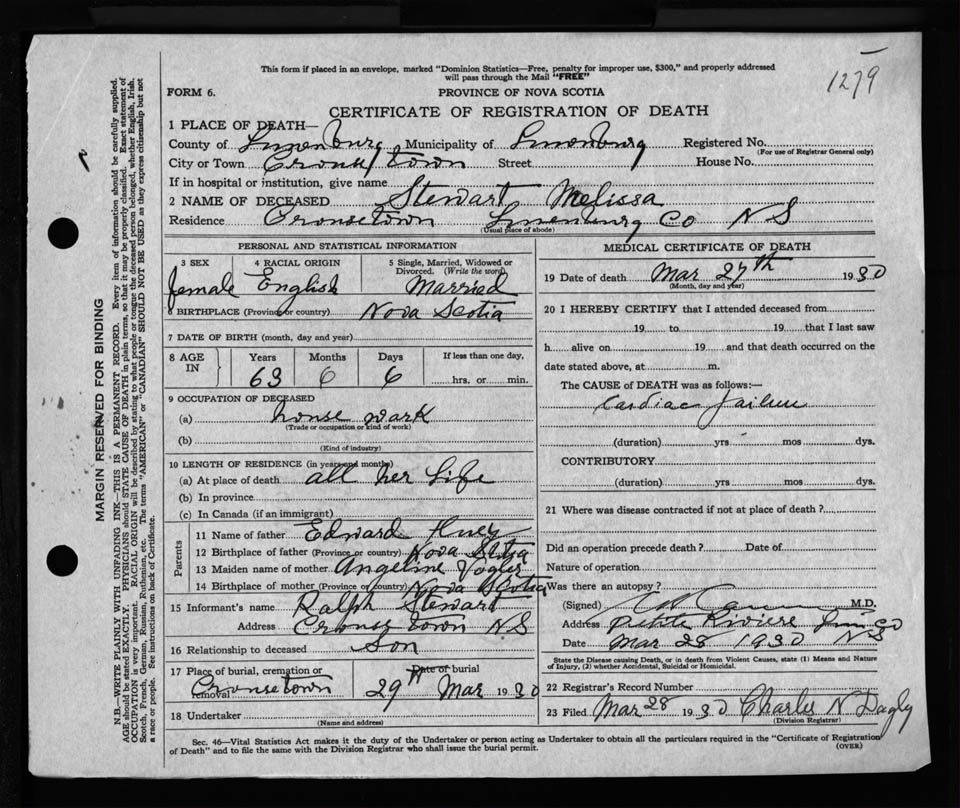 This form if placed in an envelope, marked "Dominion Statistics—Free, penalty for improper use, $300," and properly addressed
will pass through the Mail "FREE"
1279
FORM 6.
PROVINCE OF NOVA SCOTIA
CERTIFICATE OF REGISTRATION OF DEATH
1 PLACE OF DEATH—
County of Lunenburg Municipality of Lunenburg Registered No.
(For use of Registrar General only)
City or Town Town Street House No.
If in hospital or institution, give name
2 NAME OF DECEASED Stewart Melissa
Residence Crousetown Lunenburg Co N S
(Usual place of abode)
PERSONAL AND STATISTICAL INFORMATION
3 SEX 4 RACIAL ORIGIN 5 Single, Married, Widowed or
Divorced. (Write the word)
female English Married
6 BIRTHPLACE (Province or country) Nova Scotia
7 DATE OF BIRTH (month, day and year)
8 AGE IN Years Months Days If less than one day,
63 6 6 hrs. or min.
9 OCCUPATION OF DECEASED
(a) house wark
(Trade or occupation or kind of work)
(b)
(Kind of industry)
10 LENGTH OF RESIDENCE (in years and months)
(a) At place of death all her Life
(b) In province
(c) In Canada (if an immigrant)
Parents
11 Name of father Edward
12 Birthplace of father (Province or country) Nova Scotia
13 Maiden name of mother Angeline Vogler
14 Birthplace of mother (Province or country) Nova Scotia
15 Informant's name Ralph Steward
Address Town N S
16 Relationship to deceased son
17 Place of burial, cremation or removal Date of burial
Crousetown 29th Mar 1930
18 Undertaker
(Name and address)
MEDICAL CERTIFICATE OF DEATH
19 Date of death Mar 27th 1930
(Month, day and year)
20 I HEREBY CERTIFY that I attended deceased from
19 to 19 that I last saw
h alive on 19 and that death occurred on the
date stated above, at m.
The CAUSE of DEATH was as follows:—
Cardiac failure
(duration) yrs mos dys.
CONTRIBUTORY
(duration) yrs mos dys.
21 Where was disease contracted if not at place of death?
Did an operation precede death? Date of
Nature of operation
Was there an autopsy?
(Signed) M.D.
Address Petite Riviere Lun Co
Date Mar 28 1930 N S
State the Disease causing Death, or in death from Violent Causes, state (1) Means and Nature
of Injury, (2) whether Accidental, Suicidal or Homicidal.
22 Registrar's Record Number
23 Filed Mar 28 1930 Charles N Dagly
(Division Registrar)
Sec. 46—Vital Statistics Act makes it the duty of the Undertaker or person acting as Undertaker to obtain all the particulars required in the "Certificate of Registration
of Death" and to file the same with the Division Registrar who shall issue the burial permit.
(OVER)
MARGIN RESERVED FOR BINDING
N.B.—WRITE PLAINLY WITH UNFADING INK—THIS IS A PERMANENT RECORD. Every item of information should be carefully supplied.
AGE should be stated EXACTLY. PHYSICIANS should STATE CAUSE OF DEATH in plain terms, so that it may be properly classified. Exact statement of
OCCUPATION is very important. RACIAL ORIGIN will be described by stating to what people or tongue the deceased person belonged, whether English, Irish,
Scotch, French, German, Russian, Ruthenian, etc. The terms "AMERICAN" or "CANADIAN" SHOULD NOT BE USED as they express citizenship but not
a race or people. See instructions on back of Certificate.